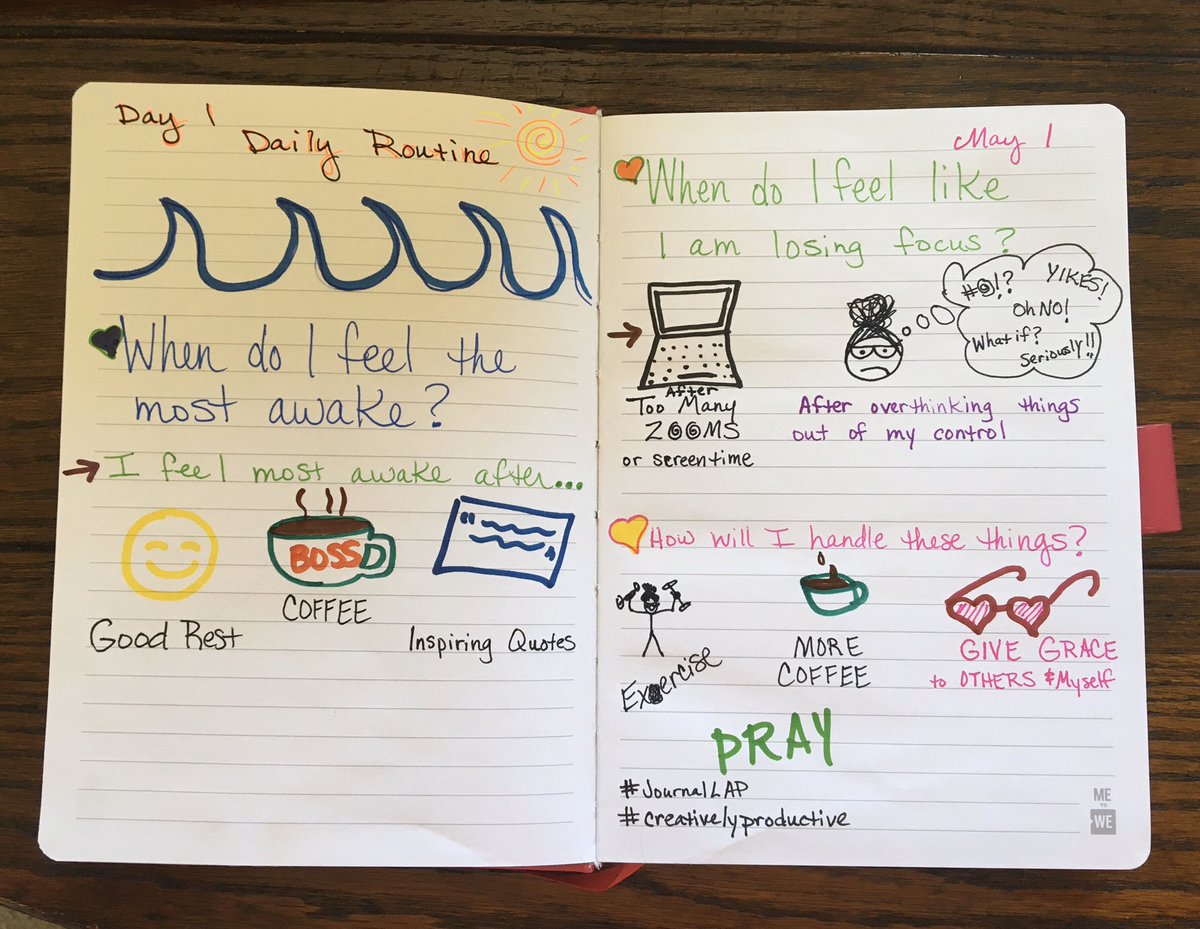 Day 1
Daily Routine
When do I feel the
most awake?
I feel most awake after...
BOSS
COFFEE
Good Rest
Inspiring Quotes
May 1
When do I feel like
I am losing focus?
#@!?
YIKES!
Oh No!
What if?
Seriously!!
After
Too Many
ZOOMS
or screentime
After overthinking things
out of my control
How will I handle these things?
Exercise
MORE
COFFEE
GIVE GRACE
to OTHERS & Myself
PRAY
#JournalLAP
#creativelyproductive
ME
TO
WE